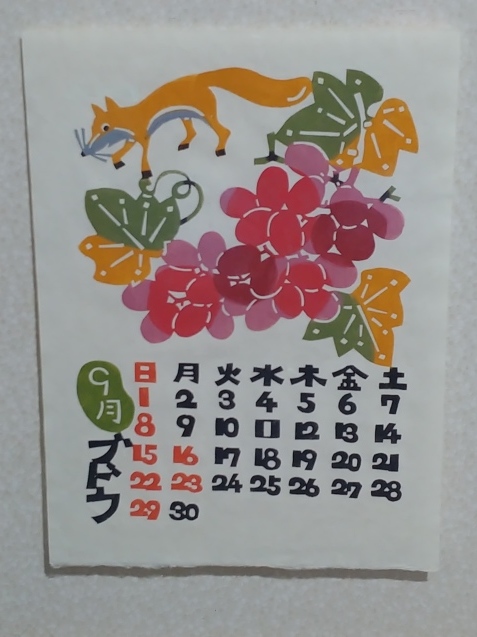 9月
ブドウ
日 月 火 水 木 金 土
1 2 3 4 5 6 7
8 9 10 11 12 13 14
15 16 17 18 19 20 21
22 23 24 25 26 27 28
29 30